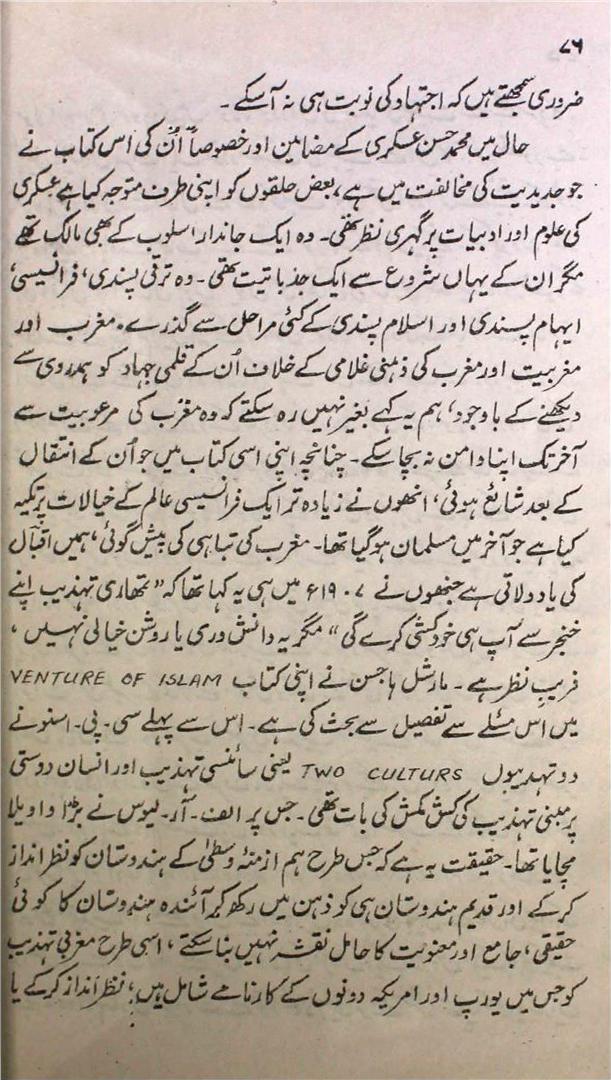 ۷۶
ضروری سمجھتے ہیں کہ اجتہاد کی نوبت ہی نہ آسکے ۔
حال میں محمد حسن عسکری کے مضامین اور خصوصاً اُن کی اس کتاب نے
جو جدیدیت کی مخالفت میں ہے ، بعض حلقوں کو اپنی طرف متوجہ کیا ہے عسکری
کی علوم اور ادبیات پر گہری نظر تھی۔ وہ ایک جاندار اسلوب کے بھی مالک تھے
مگر ان کے یہاں شروع سے ایک جذباتیت تھی ۔ وہ ترقی پسندی ، فرانسیسی ،
ابہام پسندی اور اسلام پسندی کے کئی مراحل سے گذرے۔ مغرب اور
مغربیت اور مغرب کی ذہنی غلامی کے خلاف اُن کے قلمی جہاد کو ہمدردی سے
دیکھنے کے باوجود ، ہم یہ کہے بغیر نہیں رہ سکتے کہ وہ مغرب کی مرعوبیت سے
آخر تک اپنا دامن نہ بچا سکے ۔ چنانچہ اپنی اسی کتاب میں جو اُن کے انتقال
کے بعد شائع ہوئی ، انھوں نے زیادہ تر ایک فرانسیسی عالم کے خیالات پر تکیہ
کیا ہے جو آخر میں مسلمان ہوگیا تھا۔ مغرب کی تباہی کی پیش گوئی ، ہمیں اقبال
کی یاد دلاتی ہے جنھوں نے ۱۹۰۷ء میں ہی یہ کہا تھا کہ ” تمھاری تہذیب اپنے
خنجر سے آپ ہی خودکشی کرے گی “ مگر یہ دانش وری یا روشن خیالی نہیں ،
فریبِ نظر ہے ۔ مارشل ہاجسن نے اپنی کتاب VENTURE OF ISLAM
میں اس مسئلے سے تفصیل سے بحث کی ہے۔ اس سے پہلے سی ۔ پی ۔ اسنو نے
دو تہذیبوں TWO CULTURS یعنی سائنسی تہذیب اور انسان دوستی
پر مبنی تہذیب کی کش مکش کی بات تھی ۔ جس پر الف ۔ آر ۔ لیوس نے بڑا واویلا
مچایا تھا۔ حقیقت یہ ہے کہ جس طرح ہم ازمنۂ وسطیٰ کے ہندوستان کو نظر انداز
کرکے اور قدیم ہندوستان ہی کو ذہن میں رکھ کر آئندہ ہندوستان کا کوئی
حقیقی ، جامع اور معنویت کا حامل نقشہ نہیں بنا سکتے ، اسی طرح مغربی تہذیب
کو جس میں یورپ اور امریکہ دونوں کے کارنامے شامل ہیں ، نظر انداز کرکے یا